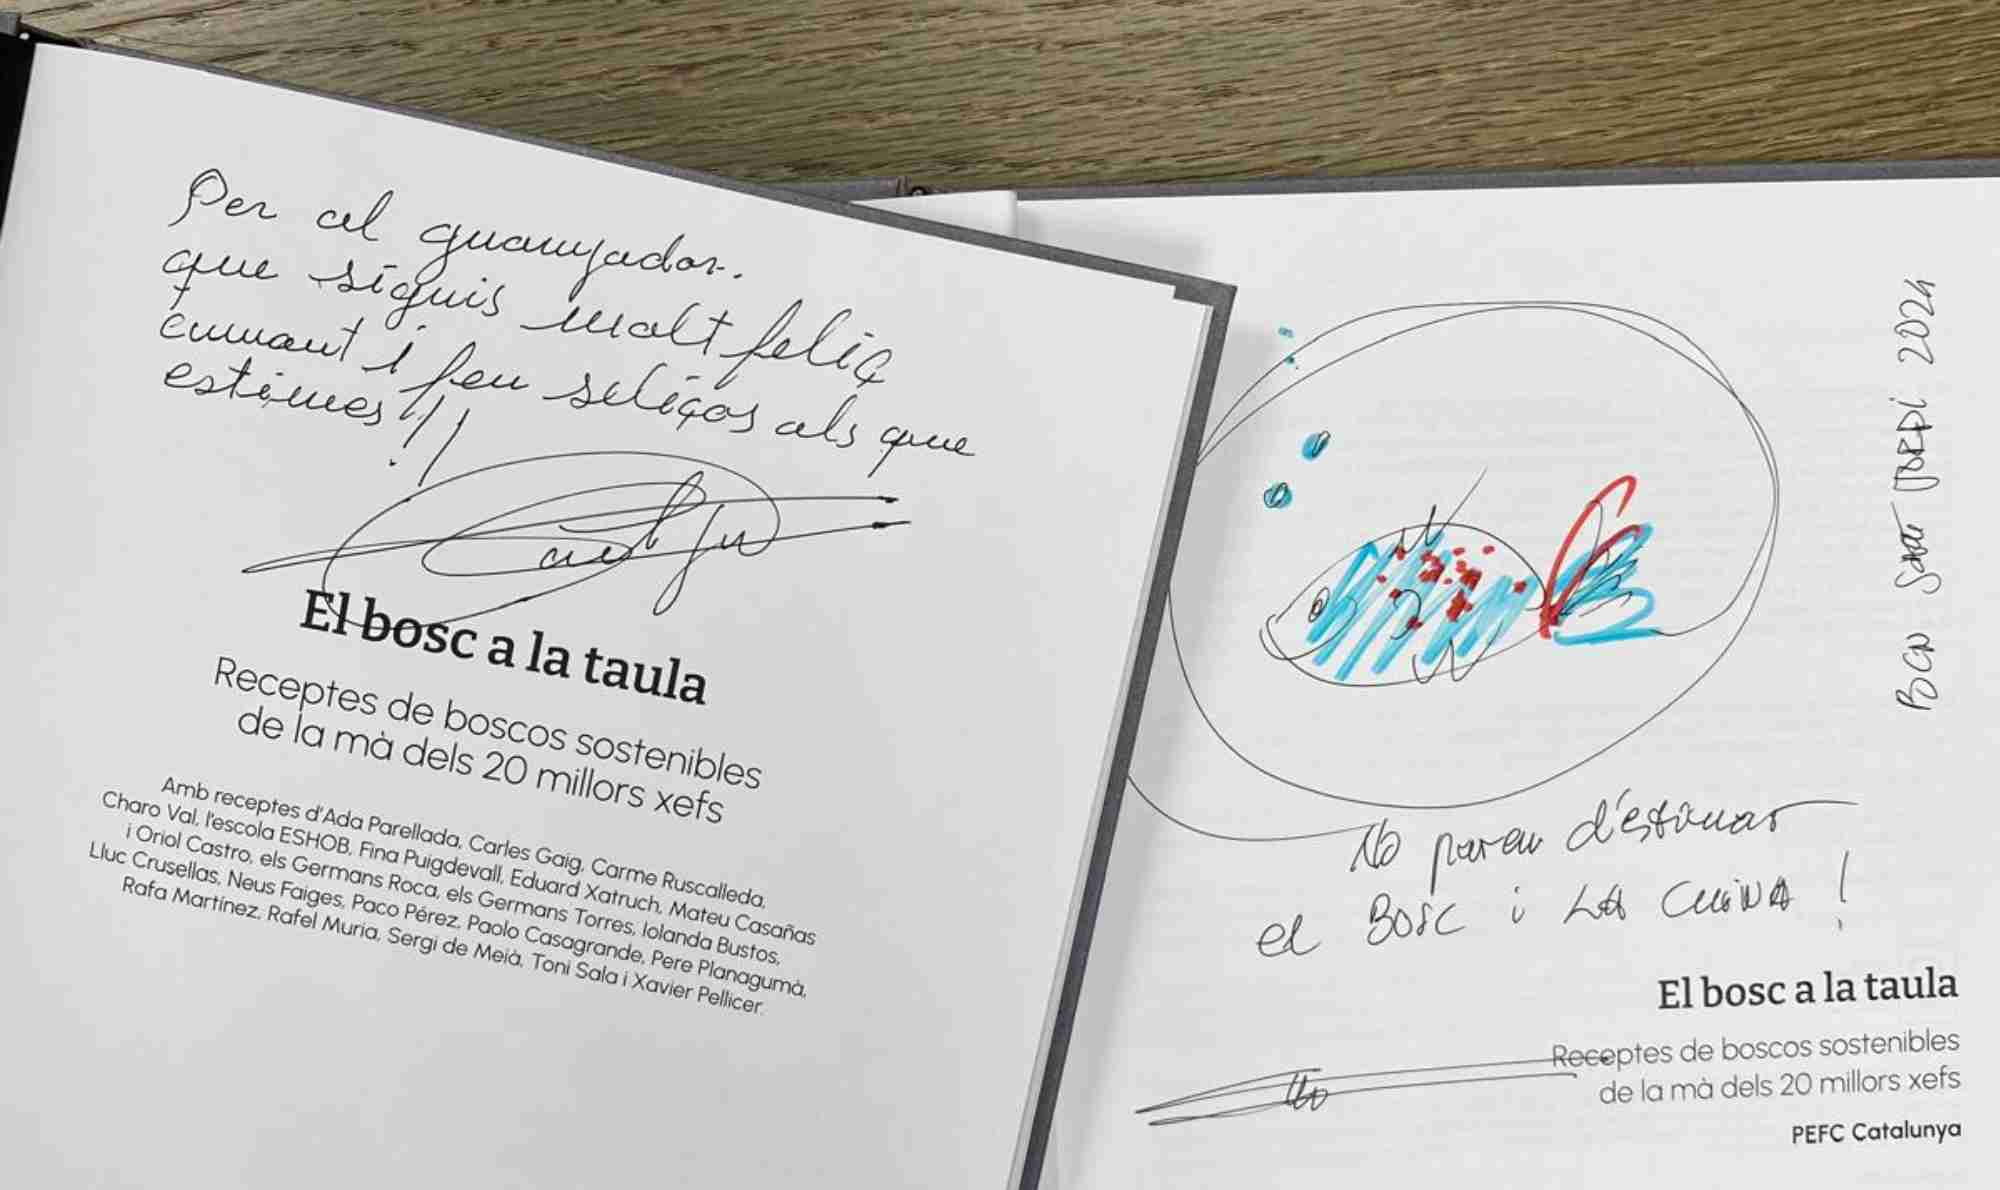 Per al guanyador.
que siguis molt feliç
cuinant i feu feliços als que
estimes!!
El bosc a la taula
Receptes de boscos sostenibles
de la mà dels 20 millors xefs
Amb receptes d'Ada Parellada, Carles Gaig, Carme Ruscalleda,
Charo Val, l'escola ESHOB, Fina Puigdevall, Eduard Xatruch, Mateu Casañas
i Oriol Castro, els Germans Roca, els Germans Torres, Iolanda Bustos,
Lluc Crusellas, Neus Faiges, Paco Pérez, Paolo Casagrande, Pere Planagumà,
Rafa Martínez, Rafel Muria, Sergi de Meià, Toni Sala i Xavier Pellicer.
BCN Sant JORDI 2024
No pareu d'estimar
el BOSC i LA CUINA!
El bosc a la taula
Receptes de boscos sostenibles
de la mà dels 20 millors xefs
PEFC Catalunya